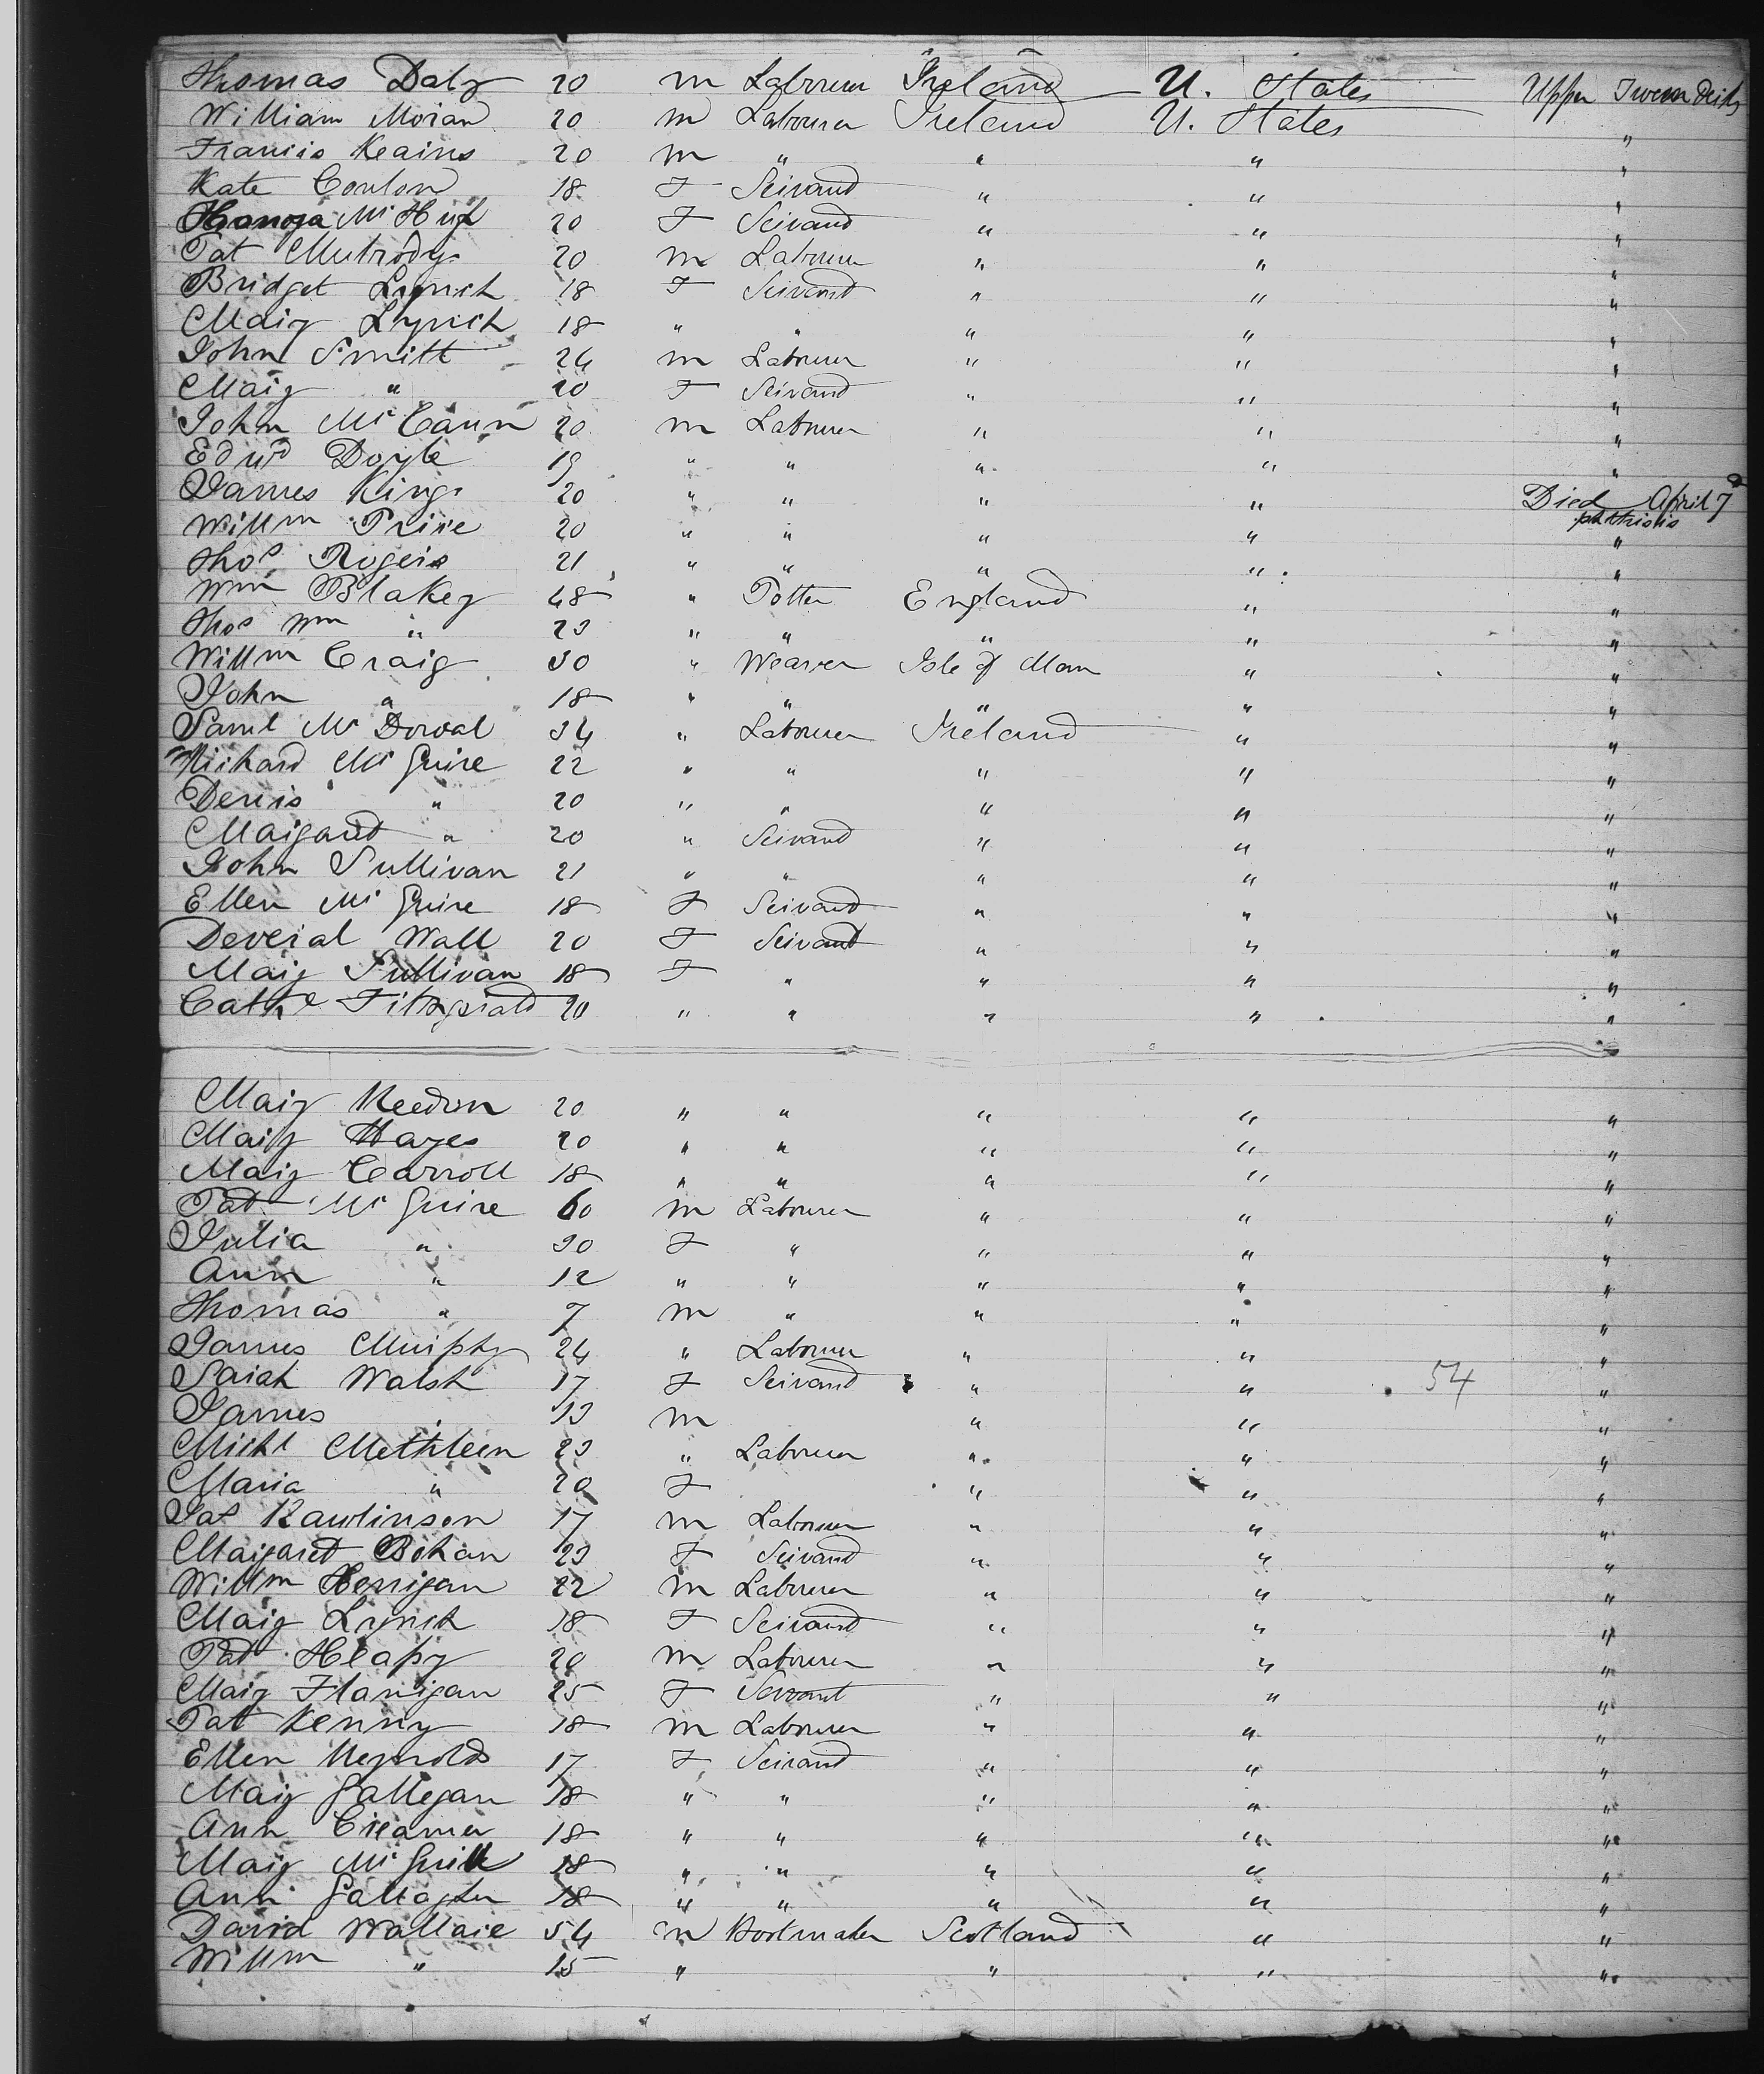 Thomas Daly 20 m Labourer Ireland U. States Upper Tween Decks
William Moran 20 m Labourer Ireland U. States "
Francis Kearns 20 m " " " "
Kate Conlon 18 F Servand " " "
Hanora McHugh 20 F Servand " " "
Pat 20 m Labourer " " "
Bridget Lynch 18 F Servand " " "
Mary Lynch 18 " " " " "
John Smith 24 m Labourer " " "
Mary " 20 F Servand " " "
John McCann 20 m Labourer " " "
Edwd Doyle 19 " " " " "
James King 20 " " " " Died April 7
phthisis
Willm Price 20 " " " " "
Thos Rogers 21 " " " " "
Wm Blakey 48 " Potter England " "
Thos Wm " 23 " " " " "
Willm Craig 30 " Weaver Isle of Man " "
John " 18 " " " " "
Saml McDowal 34 " Labourer Ireland " "
Richard McGuire 22 " " " " "
Denis " 20 " " " " "
Margaret " 20 " Servand " " "
John Sullivan 21 " " " " "
Ellen McGuire 18 F Servand " " "
Wall 20 F Servant " " "
Mary Sullivan 18 F " " " "
Cathe Fitzgerald 20 " " " " "
Mary 20 " " " " "
Mary Hayes 20 " " " " "
Mary Carroll 18 " " " " "
Pat McGuire 60 m Labourer " " "
Julia " 30 F " " " "
Ann " 12 " " " " "
Thomas " 7 m " " " "
James Murphy 24 " Labourer " " "
Sarah Walsh 17 F Servand " " 54 "
James " 13 m " " "
Michl 23 " Labourer " " "
Maria " 20 F " " "
Jas Rawlinson 17 m Labourer " " "
Margaret Bohan 23 F Servand " " "
Willm Herrigan 22 m Labourer " " "
Mary Lynch 18 F Servand " " "
Pat Heapy 20 m Labourer " " "
Mary Flanigan 25 F Servant " " "
Pat Kenny 18 m Labourer " " "
Ellen Reynolds 17 F Servand " " "
Mary Gallegan 18 " " " " "
Ann Creamer 18 " " " " "
Mary 18 " " " " "
Ann Gallagher 18 " " " " "
David Wallace 54 m Bootmaker Scotland " "
Willm " 15 " " " "